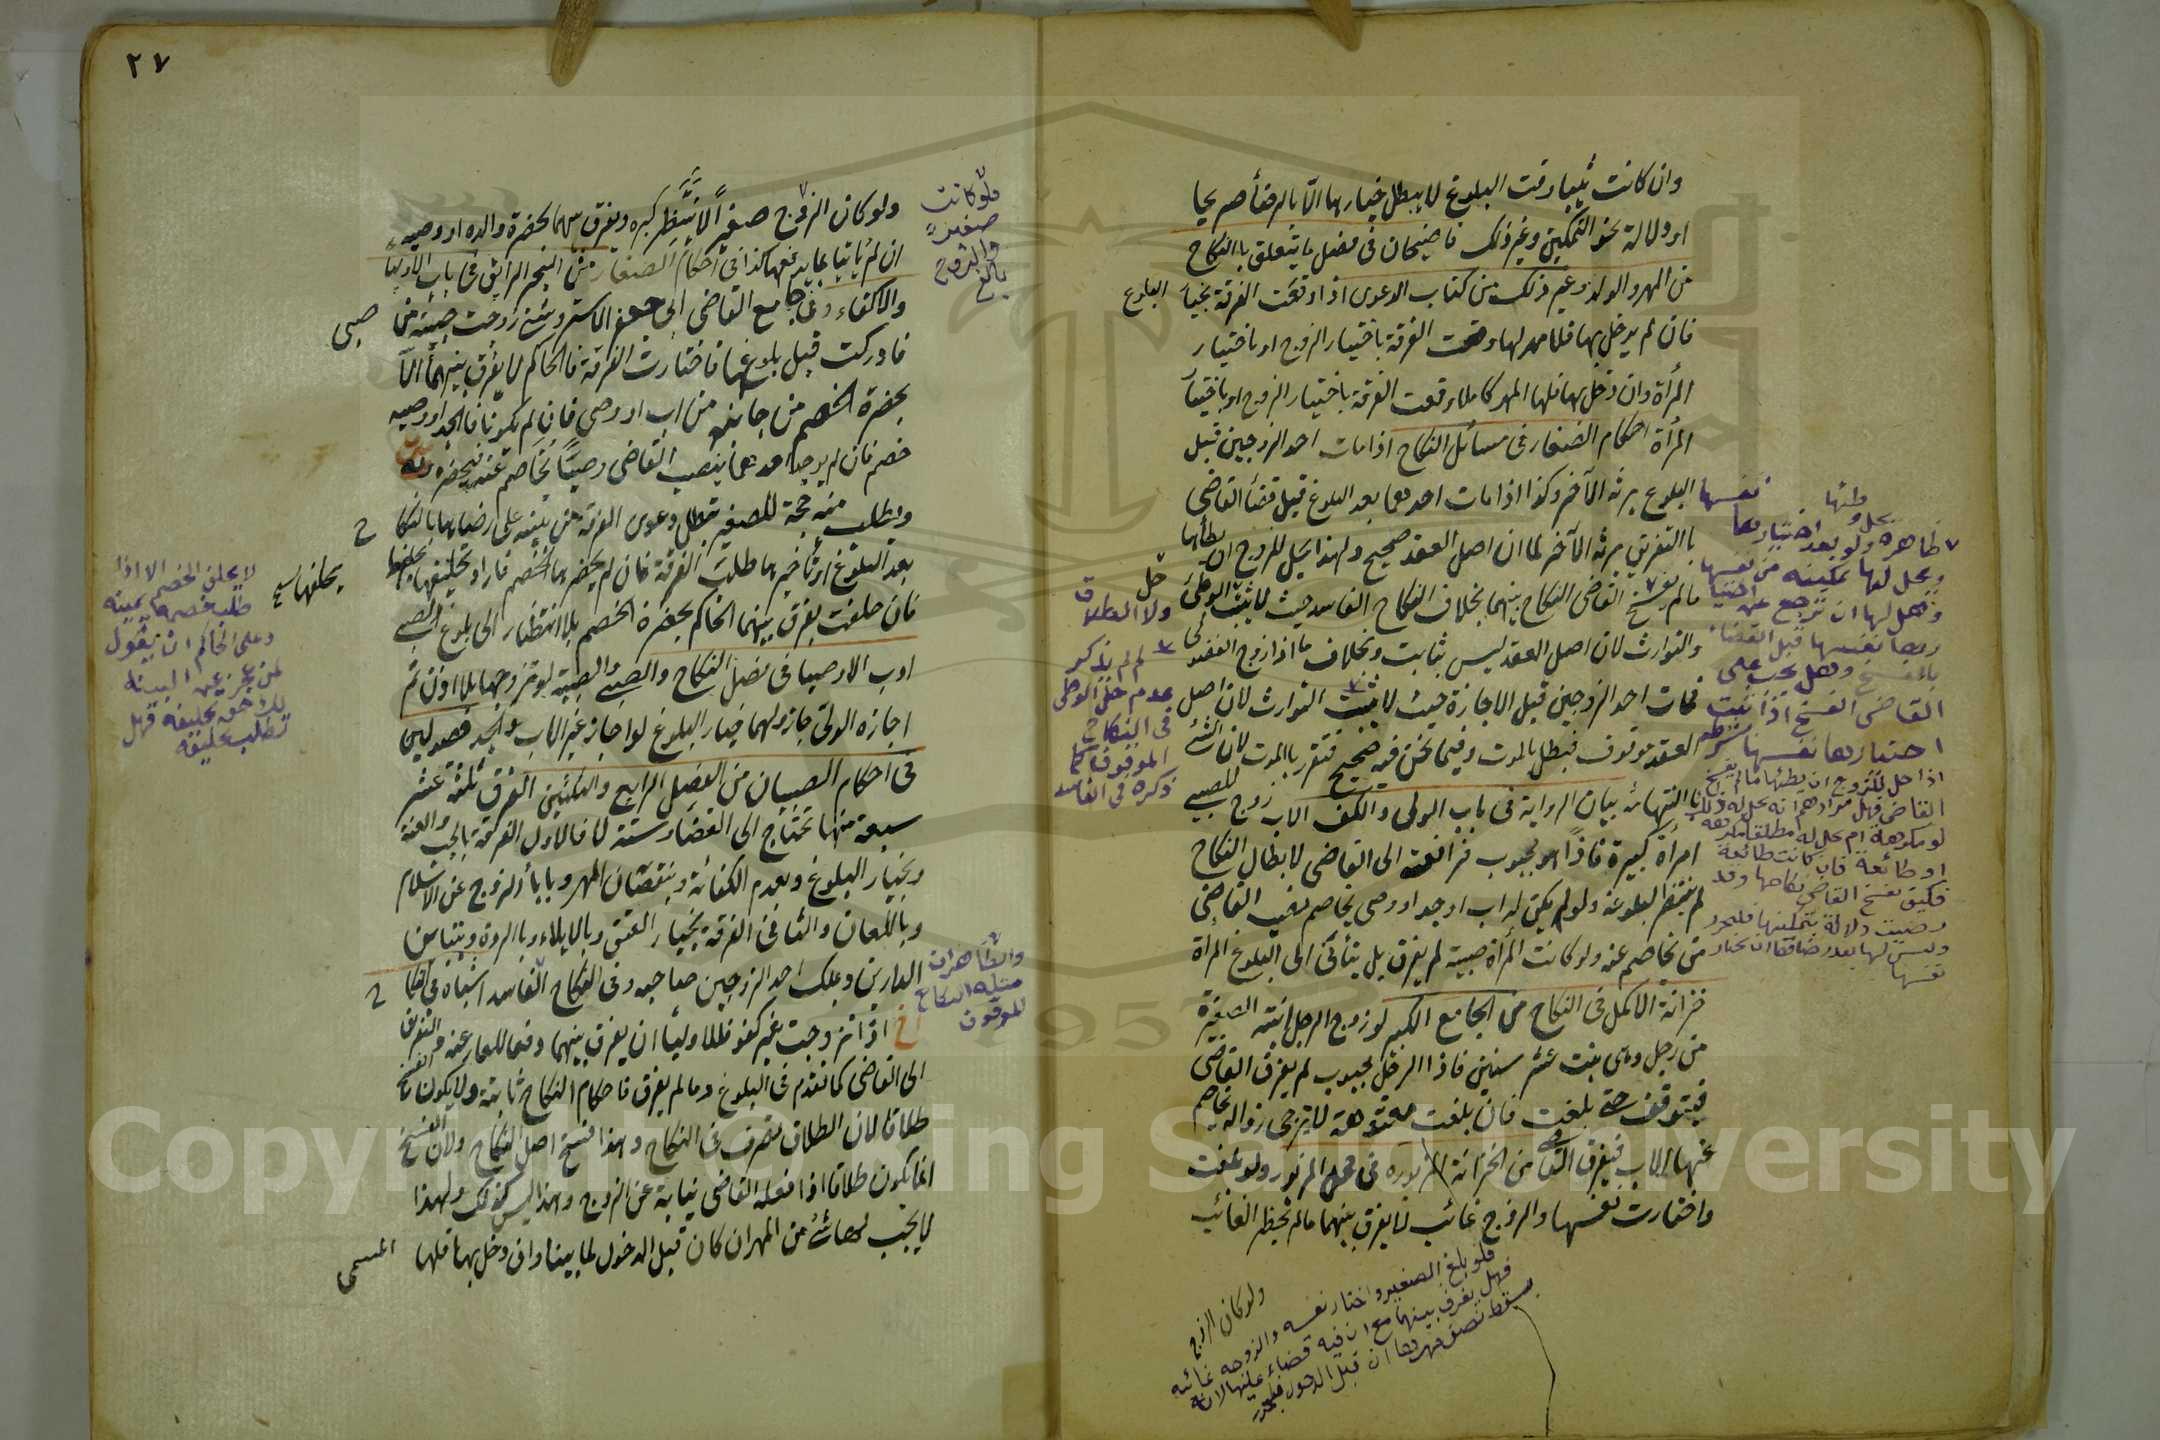 وان كانت ثيبا وقت البلوغ لا يبطل خيارها الا بالرضأ صريحا
او دلالة نحو التمكين وغير ذلك قاضيخان في فصل ما يتعلق بالنكاح
من المهر والولد وغير ذلك من كتاب الدعوى اذا وقعت الفرقة بخيا البلوغ
فان لم يدخل بها فلا مهر لها وقعت الفرقة باختيار الزوج او باختيار
المرأة وان دخل بها فلها المهر كاملا وقعت الفرقة باختيار الزوج او باختيا
المرأة احكام الصغار في مسائل النكاح اذا مات احد الزوجين قبل
البلوغ يرثه الآخر وكذا اذا مات احدهما بعد البلوغ قبل قضأ القاضي
بالتفريق يرثه الآخر لما ان اصل العقد صحيح ولهذا يحل للزوج ان يطأها
مالم يفسخ القاضي النكاح بينهما بخلاف النكاح الفاسد حيث لا يثبت الوطئ
والتوارث لان اصل العقد ليس بثابت وبخلاف ما اذا زوج الفضولي
فمات احد الزوجين قبل الاجازة حيث لا يثبت التوارث لان اصل
العقد موقوف فيبطل بالموت وفيما نحن فيه صحيح فتقرر بالموت لان الشئ
بانتهائه بيان الرواية في باب الولي والكف الاب زوج الصبي
امرأة كبيرة فاذا هو مجبوب فرافعته الى القاضي لابطال النكاح
لم ينتظر لبلوغه ولو لم يكن له اب او جد او وصي يخاصم نصب القاضي
من يخاصم عنه ولو كانت المرأة صبية لم يفرق بل يتأنى الى البلوغ المرأة
خزانة الاكمل في النكاح من الجامع الكبير لو زوج الرجل ابنته الصغيرة
من رجل وهي بنت عشر سنين فاذا الرجل مجبوب لم يفرق القاضي
فيتوقف حتى بلغت فان بلغت معتوهة لا يرجى زواله يخاصم
عنها الاب فيفرق القاضي من الخزانة المزبورة في محل المزبور ولو بلغت
واختارت نفسها والزوج غائب لا يفرق بينهما مالم يحضر الغائب
ولو كان الزوج
طاهره ولو بعد اختيارها نفسها
ويحل لها تمكينه من نفسها
وهل لها ان ترجع عن اختيا
رها نفسها قبل القضاء
بالفسخ وهل يجب على
القاضي الفسخ اذا ثبت
اختيارها نفسها
اذا حل للزوج ان يطئها مالم يفسخ
القاضي فهل مرادهم انه يحل له ذلك
لو مكرهة ام يحل له مطلقا مكرهة
او طائعة فان كانت طائعة
فكيف يفسخ القاضي نكاحها وقد
رضيت دلالة بتمكينها فليحرر
وليس لها بعد رضاها ان تختار
نفسها
حل
ولا الطلاق
لم لم يذكر
عدم حل الوطئ
في النكاح
الموقوف كما
ذكره في الفاسد
فلو بلغ الصغير واختار نفسه والزوجه غائبه
فهل يفرق بينهما مع ان فيه قضاء عليها لانه
يسقط نصف مهرها ان قبل الدخول فليحرر
٢٧
ولو كان الزوج صغيرا لا ينتظر كبره ويفرق بينهما بحضرة والده او وصيه
ان لم يأتيا بما يدفعها كذا في احكام الصغار من البحر الرائق في باب الاوليا
والاكفاء وفي جامع القاضي ابي جعفر الاستروشني زوجت صبية من صبي
فادركت قبل بلوغها فاختارت الفرقة فالحاكم لا يفرق بينهما الا
بحضرة الخصم من جانبه من اب او وصي فان لم يكونا فالجد او وصيه
خصم فان لم يوجد احدهما ينصب القاضي وصيا يخاصم عنه فيحضره
ويطلب منه حجة للصغير تبطل دعوى الفرقة من بينة على رضاها بالنكا ح
بعد البلوغ او تأخيرها طلب الفرقة فان لم يحضرها الخصم فاراد تحليفها يحلفها
فان حلفت يفرق بينهما الحاكم بحضرة الخصم بلا انتظار الى بلوغ الصبي
ادب الاوصيا في فصل النكاح والصبي والصبية لو تزوجها بلا اذن ثم
اجازه الولي جاز ولهما خيار البلوغ لو اجازه غير الاب والجد فصولين
في احكام الصبيان من الفصل الرابع والثلثين الفرق ثلثة عشر
سبعة منها تحتاج الى القضاء وستة لا فالاول الفرقة بالجب والعنة
وبخيار البلوغ وبعدم الكفائة وبنقصان المهر وبابأ الزوج عن الاسلام
وباللعان والثاني الفرقة بخيار العتق وبالايلاء وبالردة وبتباين
الدارين وبملك احد الزوجين صاحبه وفي النكاح الفاسد اشباه في النكا ح
اذا تزوجت بغير كفو فللاوليأ ان يفرق بينهما دفعا للعار عنه والتفريق
الى القاضي كما تقدم في البلوغ وما لم يفرق فاحكام النكاح ثابتة ولا يكون الفسخ
طلاقا لان الطلاق تصرف في النكاح وهذا فسخ اصل النكاح ولان الفسخ
انما يكون طلاقا اذا فعله القاضي نيابة عن الزوج وهذا ليس كذلك ولهذا
لا يجب لها شئ من المهر ان كان قبل الدخول لما بينا وان دخل بها فلها المسمى
فلو كانت
صغيرة
والزوج
بالغ
والظاهر ان
مثله النكاح
الموقوف
لا يحلف الخصم الا اذا
طلب خصمه يمينه
وعلى الحاكم ان يقول
لمن عجز عن البينة
لك حق تحليفه فهل
تطلب تحليفه
Copyright © King Saud University
1957